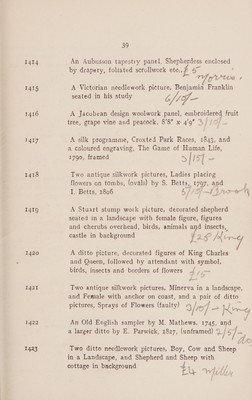 39
1414 An Aubusson tapestry panel, Shepherdess enclosed
by drapery, foliated scrollwork etc., £5
Morris.
1415 A Victorian needlework picture, Benjamin Franklin
seated in his study
6/10/-
1416 A Jacobean design woolwork panel, embroidered fruit
tree, grape vine and peacock, 8'8" x 4'9" 3/15/-
1417 A silk programme, Croxted Park Races, 1843, and
a coloured engraving, The Game of Human Life,
1790, framed 3/15/-
1418 Two antique silkwork pictures, Ladies placing
flowers on tombs, (ovals) by S. Betts, 1797, and
I. Betts, 1806
1419 A Stuart stump work picture, decorated shepherd
seated in a landscape with female figure, figures
and cherubs overhead, birds, animals and insects,
castle in background £28 King
1420 A ditto picture, decorated figures of King Charles
and Queen, followed by attendant with symbol,
birds, insects and borders of flowers £15
1421 Two antique silkwork pictures, Minerva in a landscape,
and Female with anchor on coast, and a pair of ditto
pictures, Sprays of Flowers (faulty) King
1422 An Old English sampler by M. Mathews, 1745, and
a larger ditto by E. Parwick, 1827, (unframed) 2/5/- do
1423 Two ditto needlework pictures, Boy, Cow and Sheep
in a Landscape, and Shepherd and Sheep with
cottage in background £4 Miller